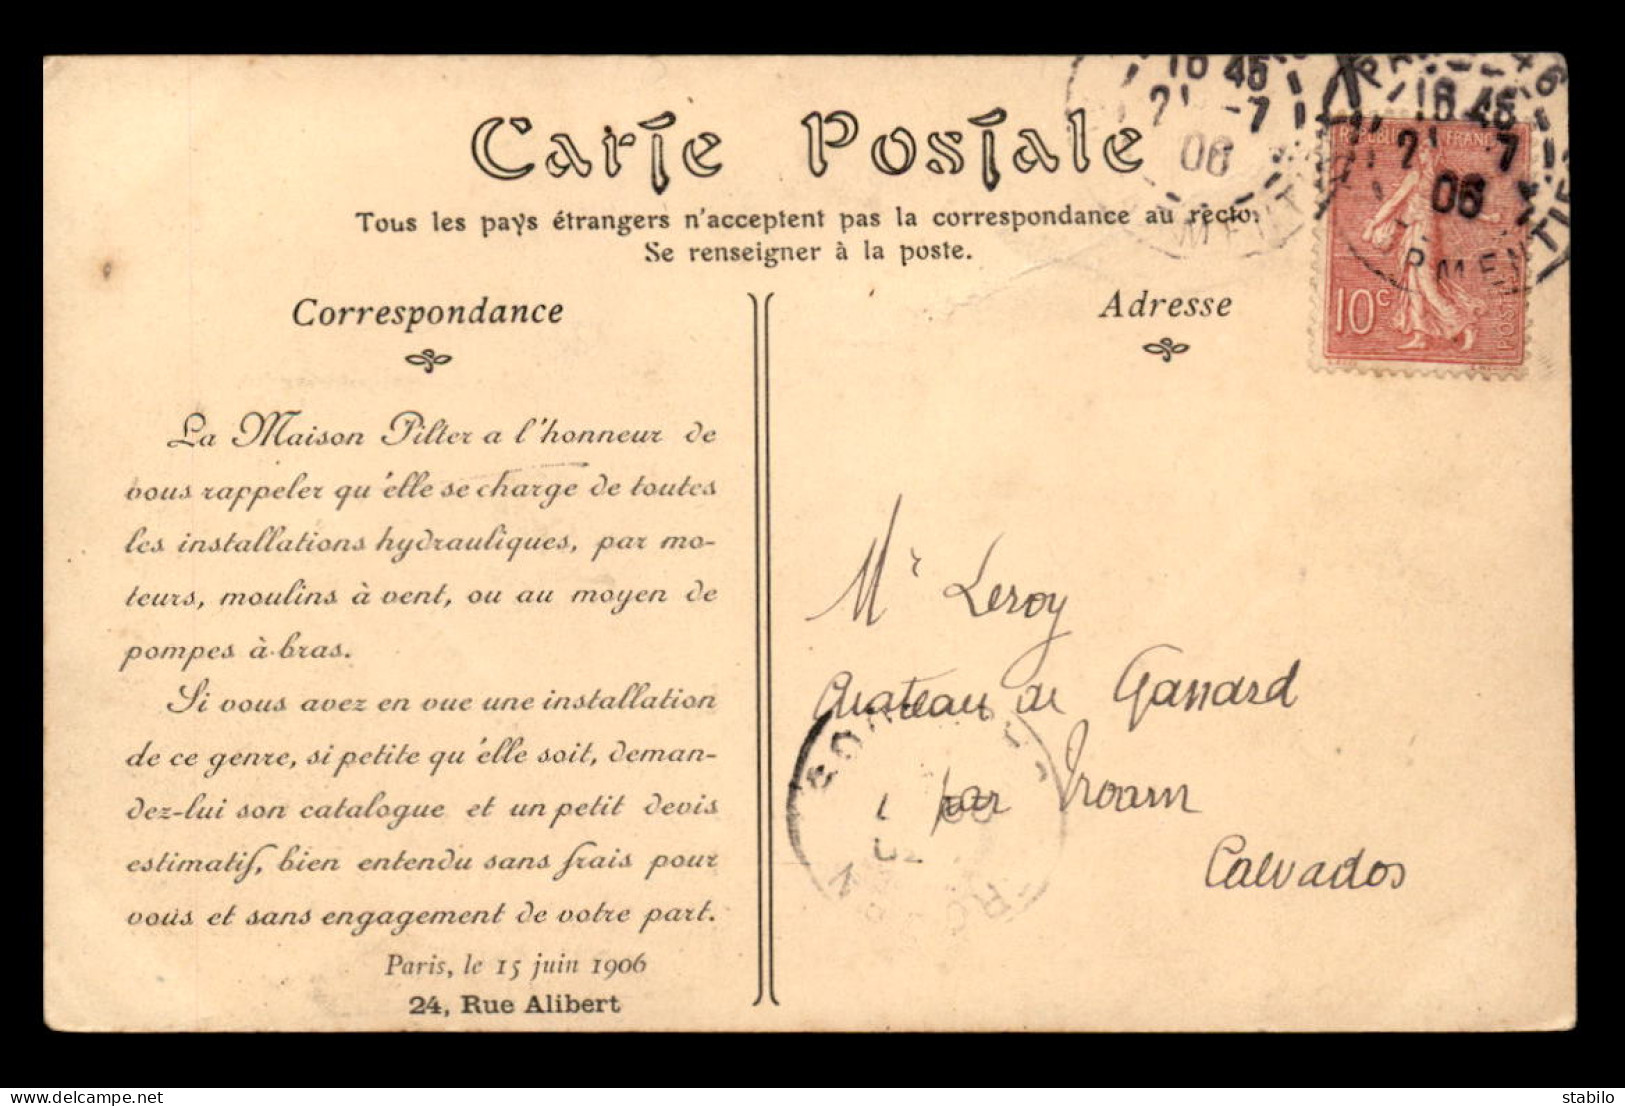 Carte Postale
Tous les pays étrangers n'acceptent pas la correspondance au recto.
Se renseigner à la poste.
Correspondance
La Maison Pilter a l'honneur de
vous rappeler qu'elle se charge de toutes
les installations hydrauliques, par mo-
teurs, moulins à vent, ou au moyen de
pompes à bras.
Si vous avez en vue une installation
de ce genre, si petite qu'elle soit, deman-
dez-lui son catalogue et un petit devis
estimatif, bien entendu sans frais pour
vous et sans engagement de votre part.
Paris, le 15 juin 1906
24, Rue Alibert
Adresse
16 45
21 -7
06
16 45
21 -7
06
10c
Mr Leroy
Chateau de
par Troarn
Calvados
delcampe.net
stabilo